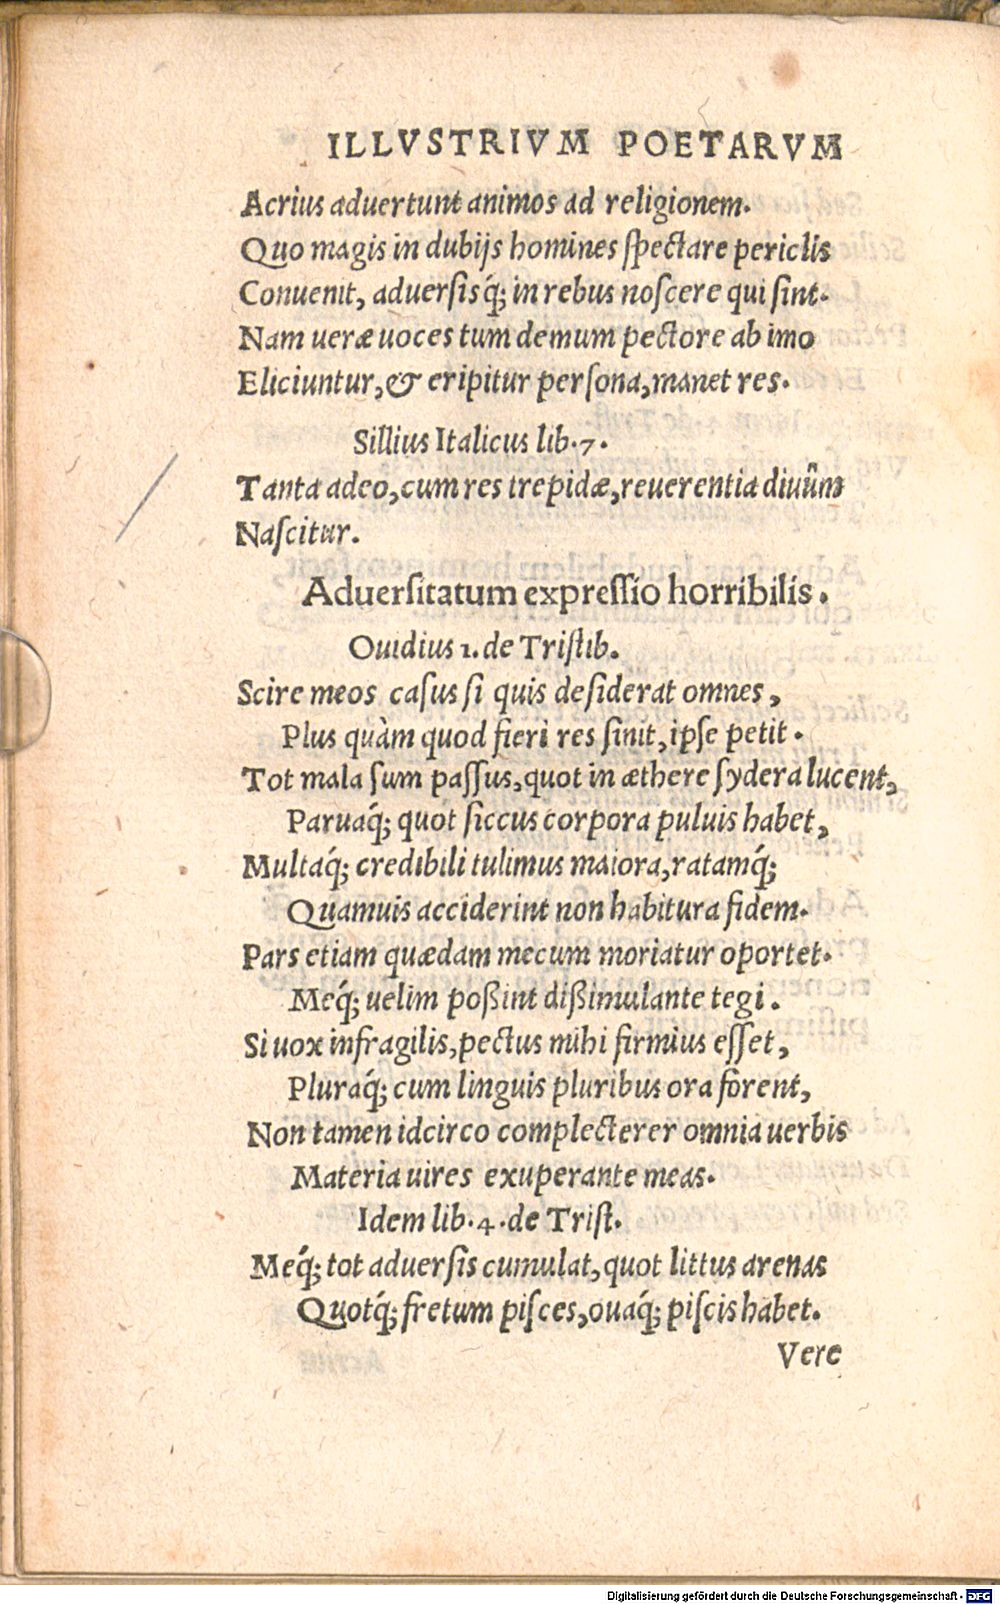 ILLVSTRIVM POETARVM
Acrius aduertunt animos ad religionem.
Quo magis in dubijs homines spectare periclis
Conuenit, aduersisq́; in rebus noscere qui sint.
Nam ueræ uoces tum demum pectore ab imo
Eliciuntur, & eripitur persona, manet res.
Sillius Italicus lib. 7.
Tanta adeo, cum res trepidæ, reuerentia diuũm
Nascitur.
Aduersitatum expressio horribilis.
Ouidius 1. de Tristib.
Scire meos casus si quis desiderat omnes,
Plus quàm quod fieri res sinit, ipse petit.
Tot mala sum passus, quot in æthere sydera lucent,
Paruaq́; quot siccus corpora puluis habet,
Multaq́; credibili tulimus maiora, ratamq́;
Quamuis acciderint non habitura fidem.
Pars etiam quædam mecum moriatur oportet.
Meq́; uelim poßint dißimulante tegi.
Si uox infragilis, pectus mihi firmius esset,
Pluraq́; cum linguis pluribus ora forent,
Non tamen idcirco complecterer omnia uerbis
Materia uires exuperante meas.
Idem lib. 4. de Trist.
Meq́; tot aduersis cumulat, quot littus arenas
Quotq́; fretum pisces, ouaq́; piscis habet.
Vere
Digitalisierung gefördert durch die Deutsche Forschungsgemeinschaft - DFG